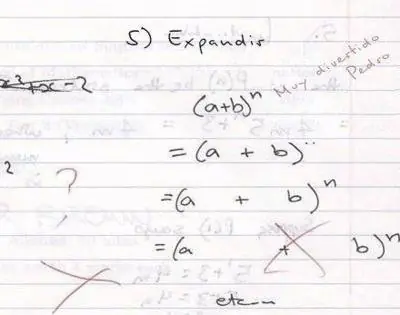 5) Expandir
x² + x - 2
Muy divertido
Pedro
(a+b)ⁿ
= (a + b)ⁿ
2
?
= (a + b)ⁿ
= (a + b)ⁿ
etc...